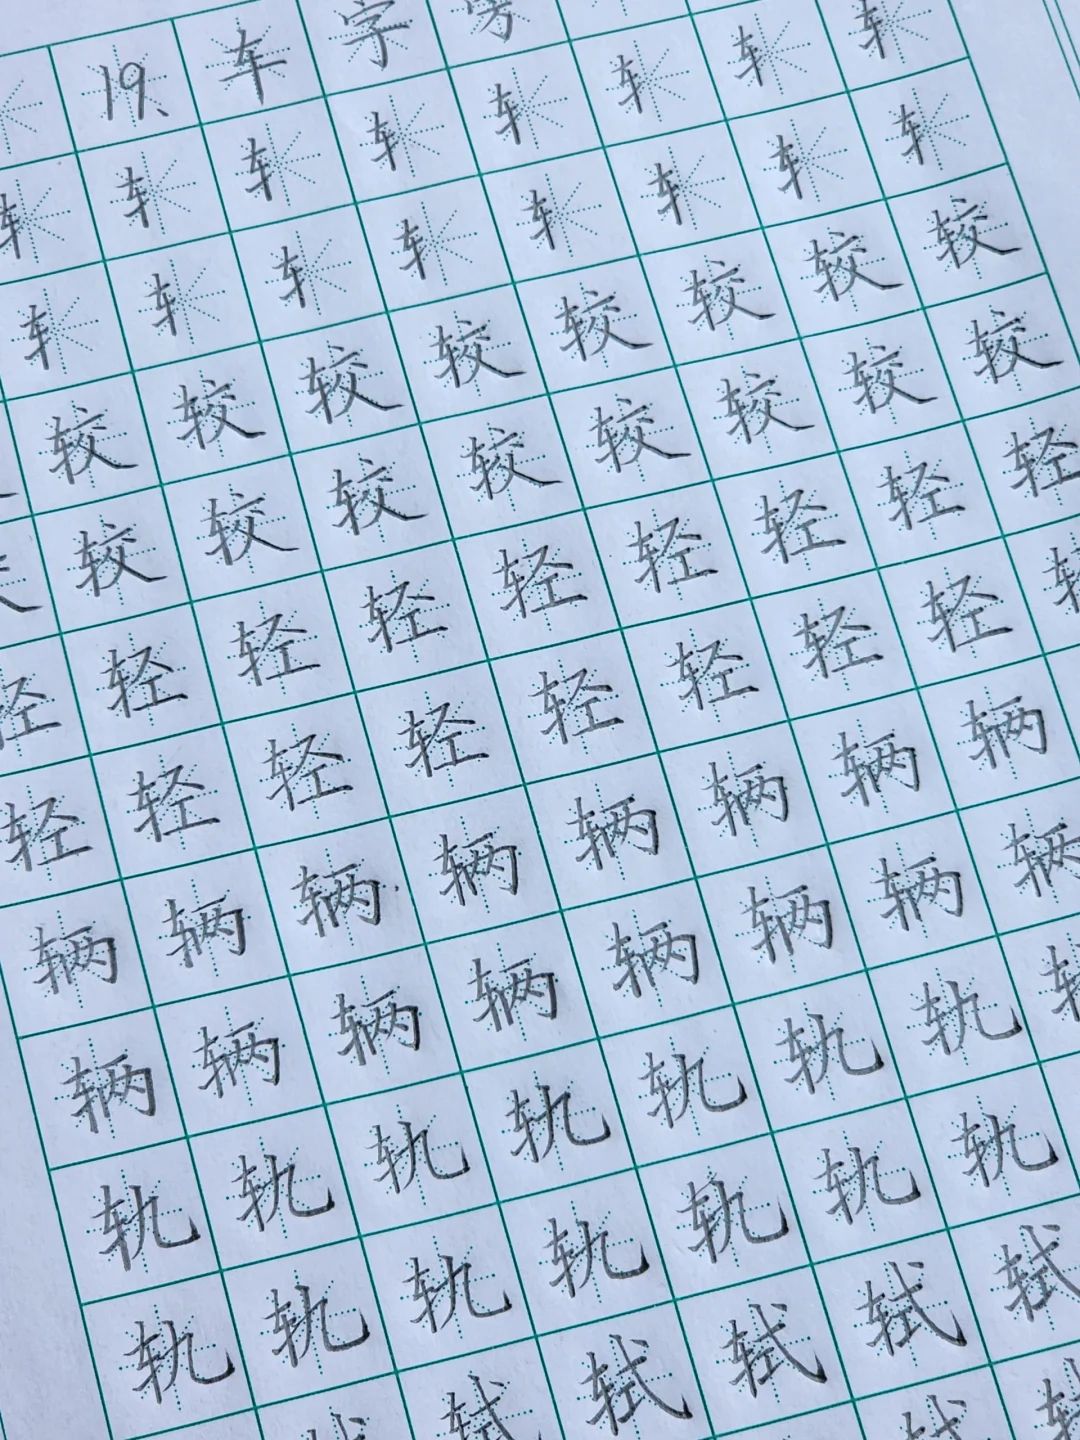 19、车字旁
车车车车车车车车
车车车车车车车车
较较较较较较较较
较较较较较较较较
轻轻轻轻轻轻轻轻轻
轻轻轻轻轻轻轻轻
辆辆辆辆辆辆辆辆
辆辆辆辆辆辆辆辆
轨轨轨轨轨轨轨
轨轨轨轨轨轨轨
轼轼轼轼轼